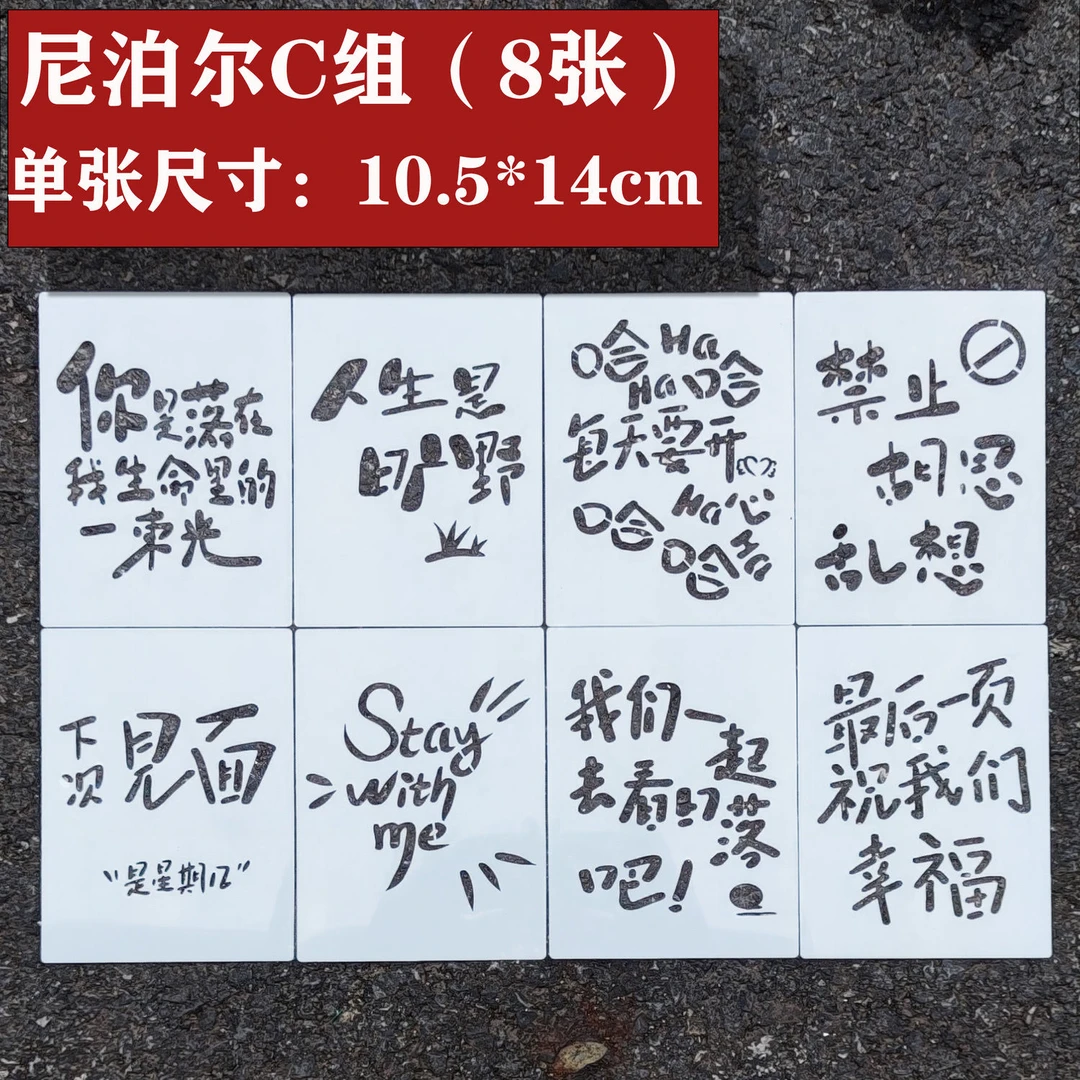 尼泊尔C组（8张）
单张尺寸：10.5*14cm
你是落在
我生命里的
一束光
人生是
旷野
哈Ha
Ha哈
每天要开
哈Ha心
哈Ha
禁止
胡思
乱想
下次见面
“是星期几”
Stay
with
me
我们一起
去看日落
吧！
最后一页
祝我们
幸福